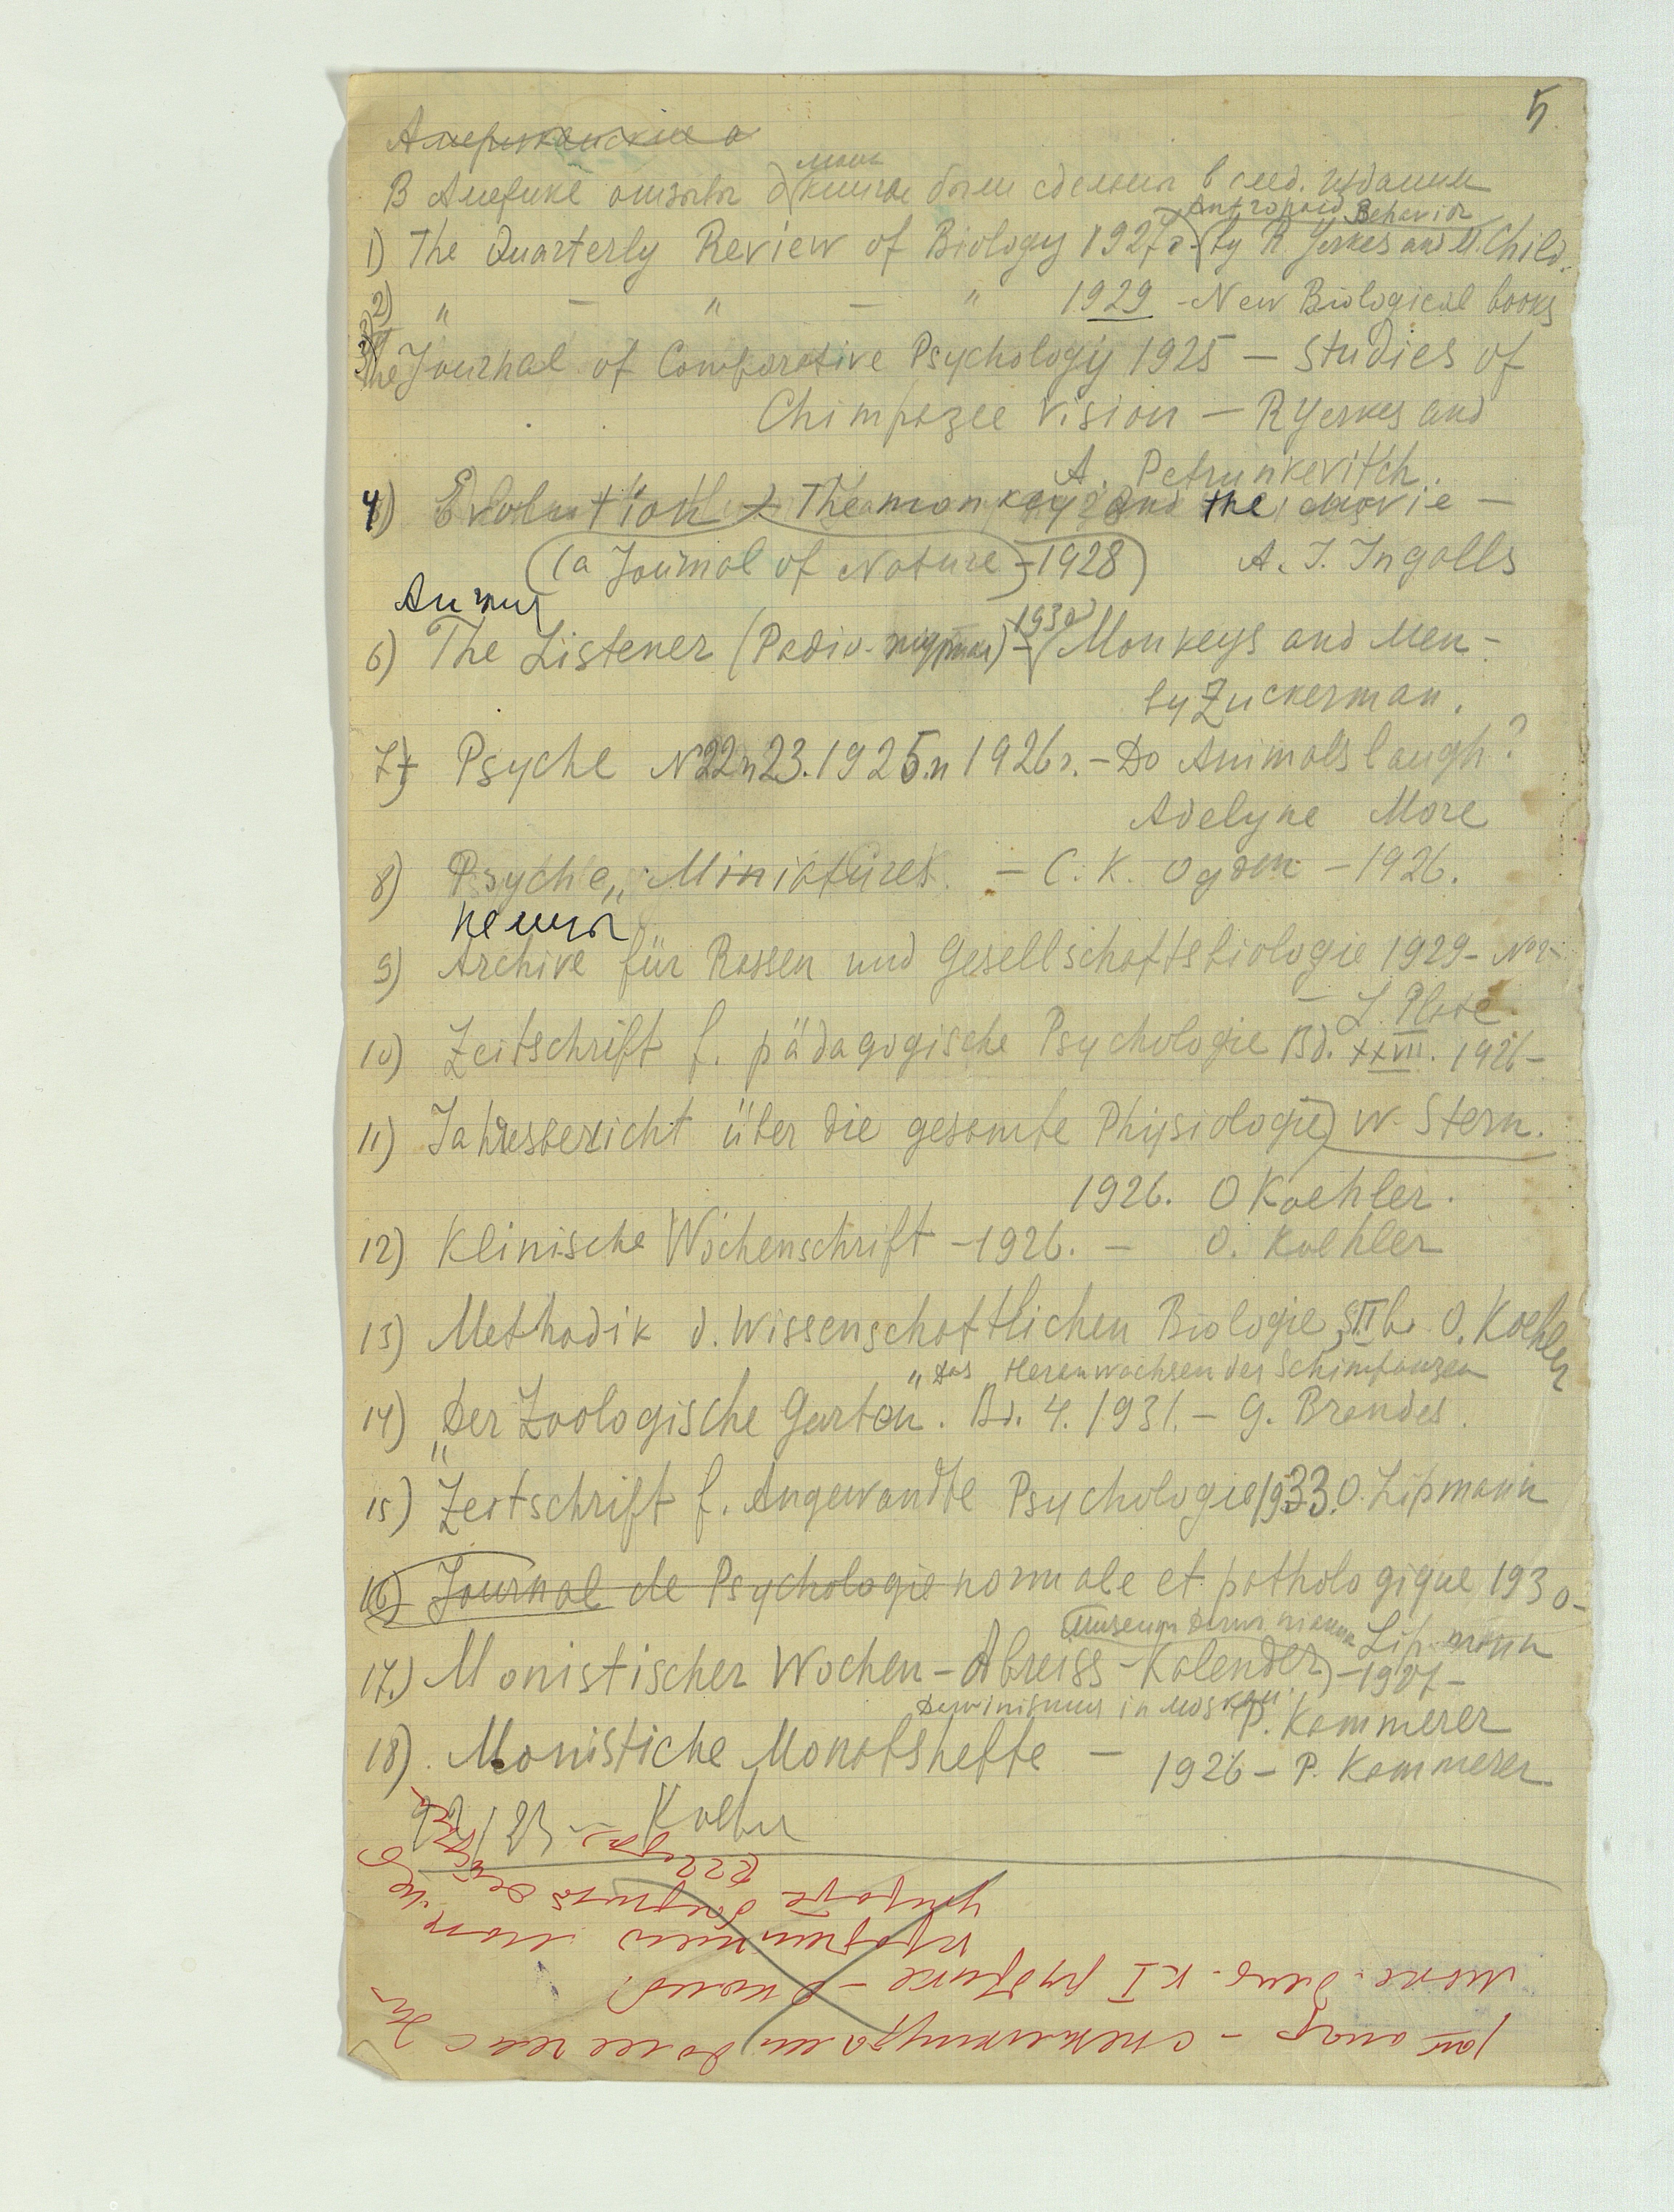 5
Американские о
В Америке отзывы о моих книгах были сделаны в след. издании
Antropoid Behavior
1) The Quarterly Review of Biology 1927 г. by R. Yerkes and M. Child.
2) " — " — " 1929 - New Biological books
3) The Journal of Comparative Psychology 1925 — Studies of
Chimpazee Vision — R Yerkes and
A. Petrunkevitch.
4) Evolution The monkey and the movie —
(a Journal of Nature) - 1928) A. J. Ingalls
Англия
6) The Listener (Радио-журнал) - 1930 Monkeys and Men -
by Zuckerman.
7) Psyche N22 и 23. 1925 и 1926 г. - Do Animals laugh?
Adelyne More
8) Psyche „Miniatures. — C. K. Ogden — 1926.
9) Archive für Rassen und Gesellschaftsbiologie 1929 - N2
— L. Plate
10) Zeitschrift f. pädagogische Psychologie Bd. XXVII. 1926 —
11) Jahresbericht über die gesamte Physiologie) W. Stern.
1926. O Koehler.
12) Klinische Wochenschrift — 1926. — O. Koehler
13) Methodik d. Wissenschaftlichen Biologie, O. Koehler
„Das Heranwachsen des Schimpanzen
14) „Der Zoologische Garten". Bd. 4. 1931. — G. Brandes.
15) Zeitschrift f. Angewandte Psychologie 1933. O. Lipmann
16) Journal de Psychologie normale et pathologique 1930 -
Museum Darwinianum Lipmann
17.) Monistischer Wochen-Abreiss-Kalender) — 1927 —
Darwinismus in Moskau. P. Kammerer
18). Monistiche Monatshefte — 1926 — P. Kammerer